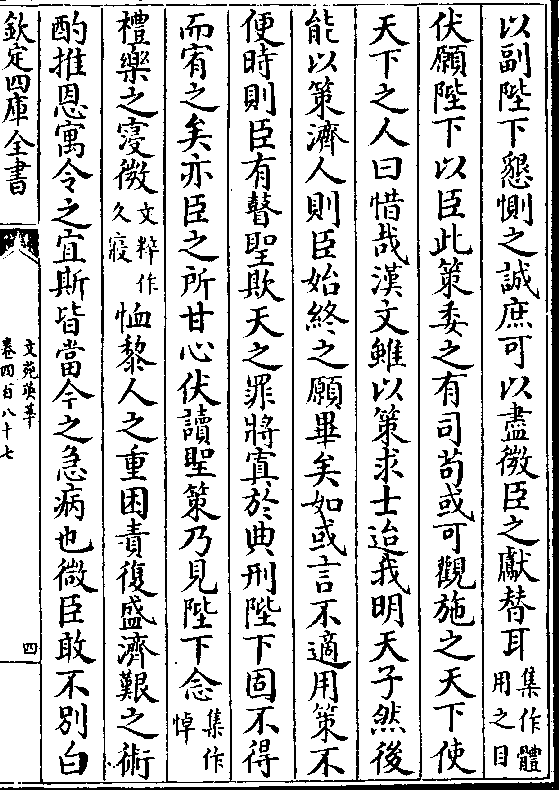 以副陛下懇惻之誠庶可以盡微臣之獻替耳集作體用之目
伏願陛下以臣此策委之有司苟或可觀施之天下使
天下之人曰惜哉漢文雖以策求士迨我明天子然後
能以策濟人則臣始終之願畢矣如或言不適用策不
便時則臣有瞽聖欺天之罪將寘於典刑陛下固不得
而宥之矣亦臣之所甘心伏讀聖策乃見陛下念集作悼
禮樂之寖微文粹作久寢恤黎人之重困責復盛濟艱之術
酌推恩寓令之宜斯皆當今之急病也微臣敢不別白
欽定四庫全書
文苑英華
卷四百八十七
四